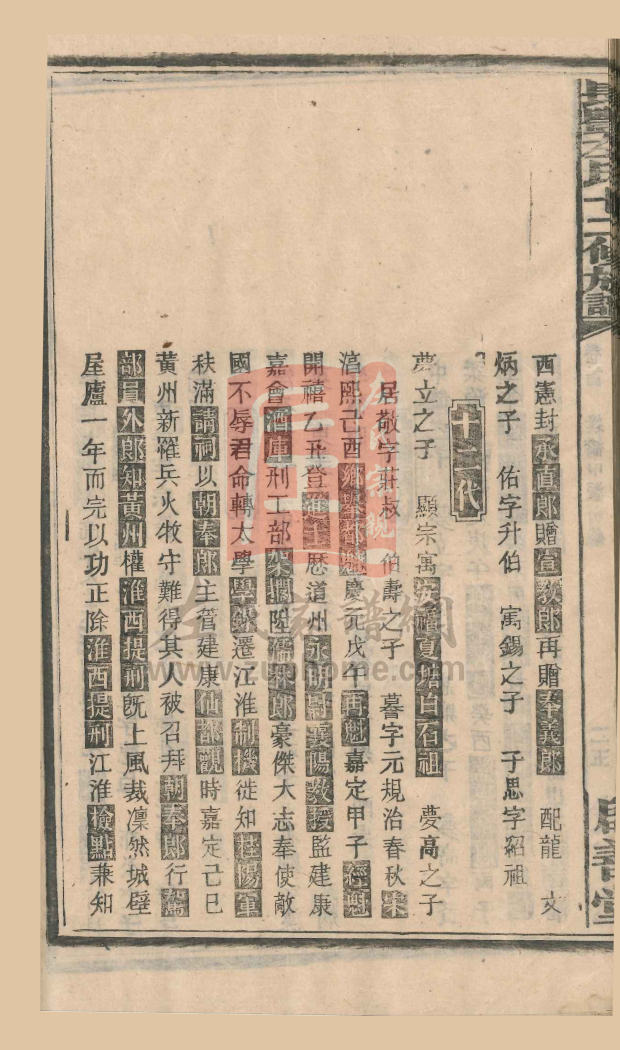 西憲封承直郎贈宣教郎再贈奉義郎 配龍 文
炳之子 佑字升伯 寓錫之子 子思字紹祖
十二代
夢立之子 顯宗寓安福夏塘白石祖 夢高之子
居敬字莊叔 伯壽之子 暮字元規治春秋
淳熙己酉鄉舉都魁慶元戊午再魁嘉定甲子經魁
開禧乙丑登進士歷道州永明尉襄陽教授監建康
嘉會酒庫刑工部架擱陞儒林郎豪傑大志奉使敵
國不辱君命轉太學學錄遷江淮制機徙知桂陽軍
秩滿請祠以朝奉郎主管建康仙都觀時嘉定己巳
黃州新罹兵火牧守難得其人被召拜朝奉郎行駕
部員外郎知黃州權淮西提刑既上風裁凜然城壁
屋廬一年而完以功正除淮西提刑江淮檢點兼知
www.zuphome.com